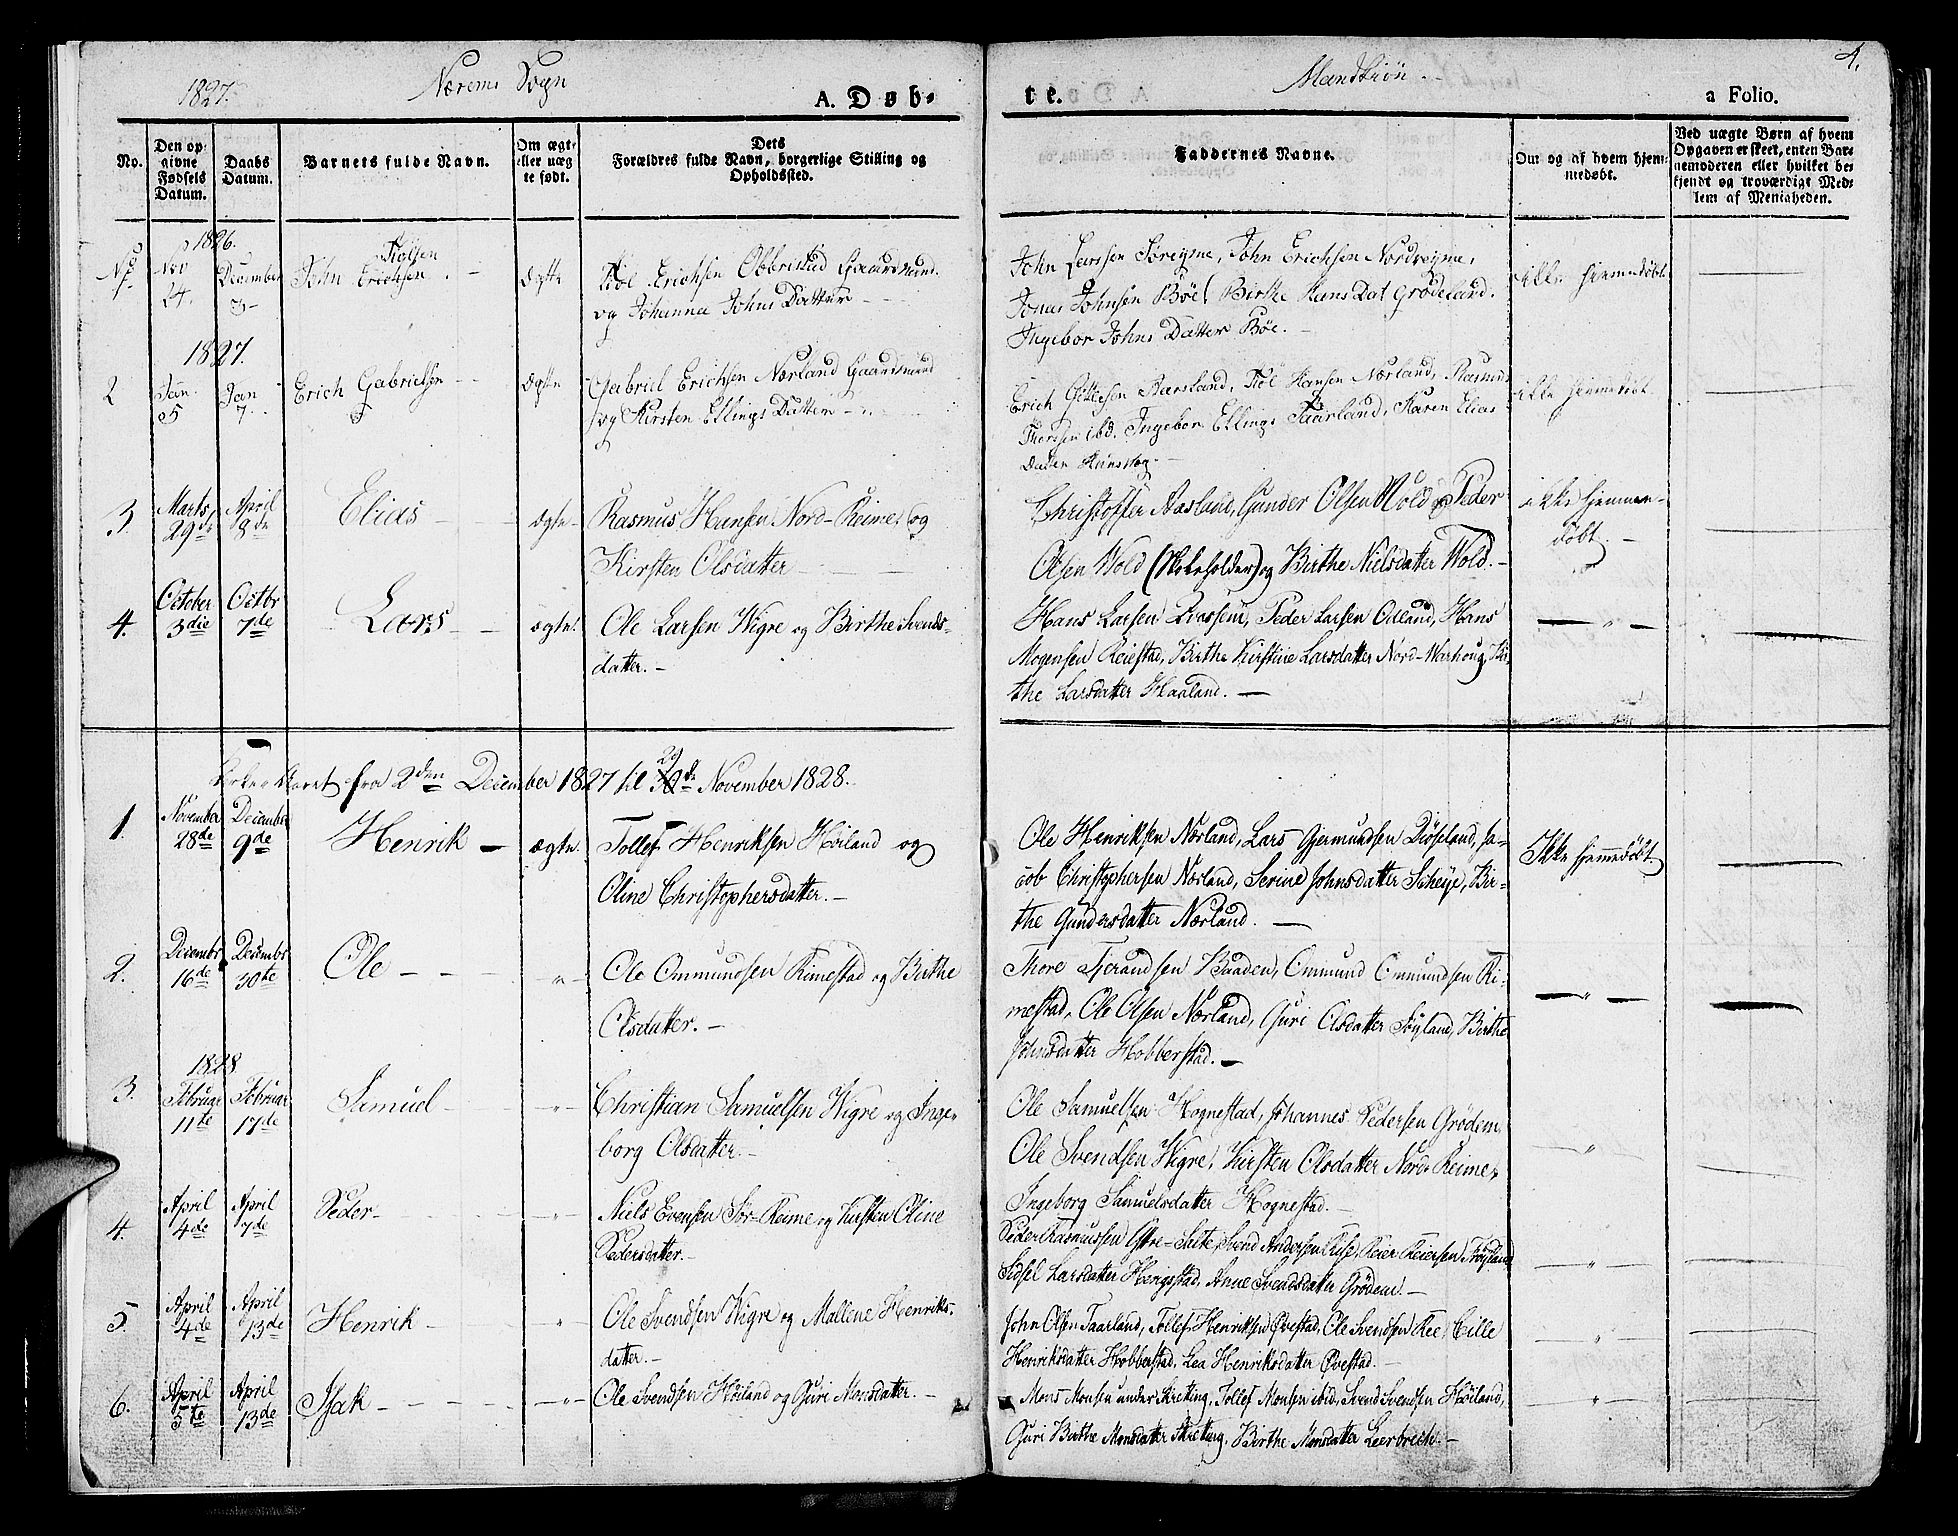 1827. Nærems Sogn A. Døb-
te. Mandkiøn. a Folio. 4.
No. Den opgivne Fødsels Datum. Daabs Datum. Barnets fulde Navn. Om ægte eller uægte født. Dets Forældres fulde Navn, borgerlige Stilling og Opholdssted.
Faddernes Navne. Om og af hvem hjemmedøbt. Ved uægte Børn af hvem Opgaven er skeet, enten Barnemoderen eller hvilket bekjendt og troværdigt Medlem af Menigheden.
1826.
Nov 24. December 3 John Erichsen ægte Erichsen Obbrestad Gaardmand
og Johanna Johns Datter
John Larssen John Erichsen
Jonas Johnsen Bøe Birthe Hans Dat Grødeland.
Ingebor Johns Datter Bøe.
ikke hjemmedøbt
1827.
2 Jan. 5 Jan 7. Erich Gabrielsen ægte Gabriel Erichsen Nærland Gaardmand
og Kirsten Ellings Datter
Erich Hansen Nærland, Rasmus
ibd. Ingebor Ellings Taarland, Karen Elias
Datter
ikke hjemmedøbt
3 Marts 29de April 8de Elias ægte Rasmus Hansen Nord-Reime og
Kirsten Olsdatter
Christoffer Aasland, Gunder Olsen Wold, Peder
Olsen Wold (Skoleholder) og Birthe Nielsdatter Wold.
ikke hjemme-
døbt.
4. October 3die Octbr 7de Lars ægte. Ole Larsen Wigre og Birthe Svends-
datter.
Hans Larsen Peder Larsen Odland, Hans
Mogensen Reiestad, Birthe Kirstine Larsdatter Nord-Warhoug, Bir-
the Larsdatter Haaland.
Kirke-Aaret fra 2den December 1827 til 29 30de November 1828.
1. November 28de December 9de Henrik ægte. Tollef Henriksen Høiland og
Oline Christophersdatter.
Ole Henriksen Nærland, Lars Gjermundsen Diøseland, Ja-
cob Christophersen Nærland, Serine Johnsdatter Scheije, Bir-
the Gundersdatter Nærland.
Ikke hjemmedøbt
2. Decembr 16de Decembr 30te Ole " Ole Ommundsen Rimestad og Birthe
Olsdatter.
Thore Tjerandsen Braaden, Ommund Ommundsen Ri-
mestad, Ole Olsen Nærland, Guri Olsdatter Søyland, Birthe
Johnsdatter Hobberstad.
"
1828
3. Februar 11te Februar 17de Samuel " Christian Samuelsen Wigre og Inge-
borg Olsdatter.
Ole Samuelsen Hognestad, Johannes Pedersen Grødem
Ole Svendsen Wigre, Kirsten Olsdatter Nord-Reime,
Ingeborg Samuelsdatter Hognestad.
"
4. April 4de April 7de Peder " Niels Evensen Sør-Reime og Kirsten Oline
Pedersdatter.
Peder Rasmussen Øvre-Salte, Svend Andersen Reier Reiersen Frøyland
Sidsel Larsdatter Hengstad, Anne Svendsdatter Grødem.
"
5. April 4de April 13de Henrik " Ole Svendsen Wigre og Mallene Henriks-
datter.
John Olsen Taarland, Tollef Henriksen Øvestad, Ole Svendsen Ree, Cille
Henriksdatter Hobberstad, Lea Henriksdatter Øvestad.
"
6. April 5te April 13de Isak " Ole Svendsen Høiland og Guri Monsdatter.
Mons Monsen under Skretting, Tollef Monsen ibid, Svend Svendsen Høiland,
Guri Birthe Monsdatter Skretting, Birthe Monsdatter Leerbrech.
"